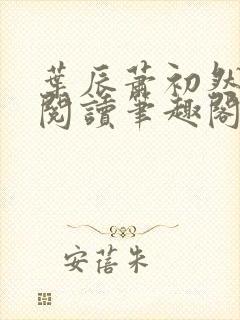 葉辰蕭初然
閱讀筆趣閣
安蓓朱